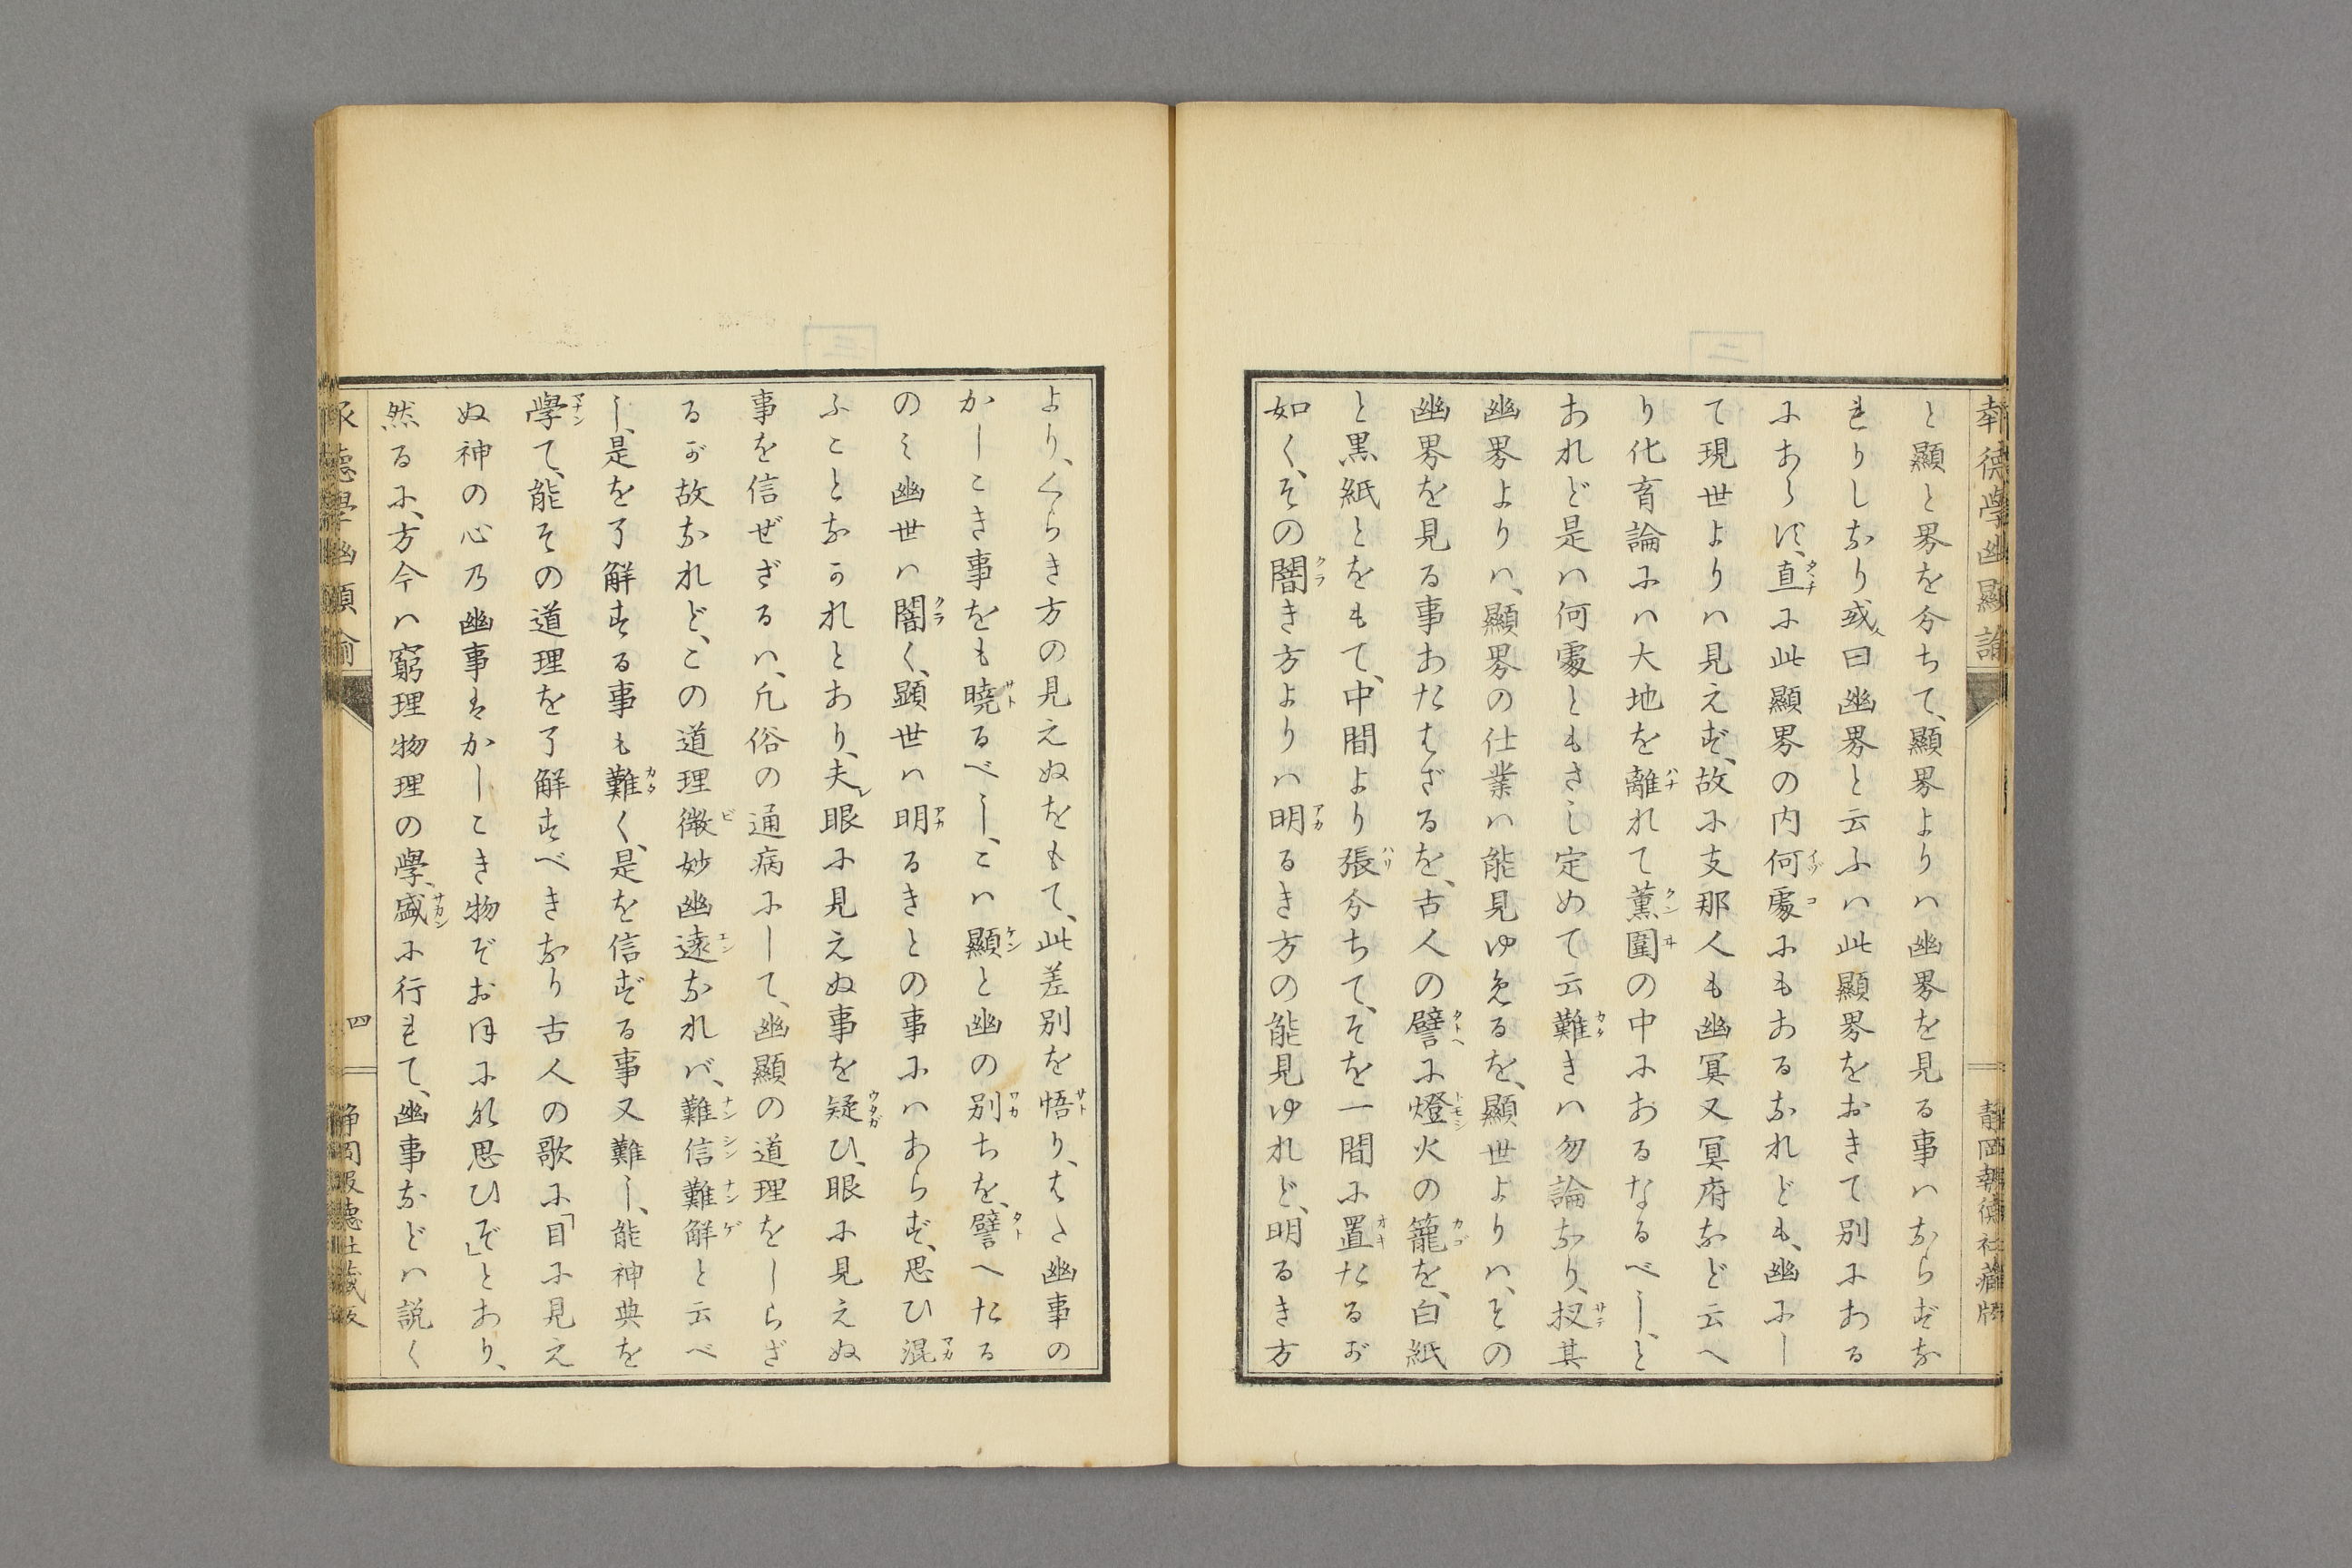 報徳學幽顯論
靜岡報德社藏版
と顯と界を分ちて、顯界よりハ幽界を見る事ハならずな
れりしなり或人曰幽界と云ふハ此顯界をおきて別にある
にあらず、直に此顯界の内何處にもあるなれども、幽にし
て現世よりハ見えず、故に支那人も幽冥又冥府など云へ
り化育論にハ大地を離れて薫圍の中にあるなるべし、と
あれど是ハ何處ともさし定めて云難きハ勿論なり、扨其
幽界よりハ、顯界の仕業ハ能見ゆめるを、顯世よりハ、その
幽界を見る事あたはざるを、古人の譬に燈火の籠を、白紙
と黒紙とをもて、中間より張分ちて、そを一間に置たるが
如く、その闇き方よりハ明るき方の能見ゆれど、明るき方
より、くらき方の見えぬをもて、此差別を悟り、はた幽事の
かしこき事をも曉るべし、こハ顯と幽の別ちを、譬へたる
のミ幽世ハ闇く、顕世ハ明るきとの事にハあらず、思ひ混
ふことなかれとあり、夫レ眼に見えぬ事を疑ひ、眼に見えぬ
事を信ぜざるハ、凡俗の通病にして、幽顯の道理をしらざ
るが故なれど、この道理微妙幽遠なれバ、難信難解と云べ
し、是を了解する事も難く、是を信ずる事又難し、能神典を
學て、能その道理を了解すべきなり古人の歌に「目に見え
ぬ神の心乃幽事はかしこき物ぞおほにな思ひぞ」とあり、
然るに、方今ハ窮理物理の學、盛に行れて、幽事などハ説く
報德學幽顯論
四
靜岡報德社藏版